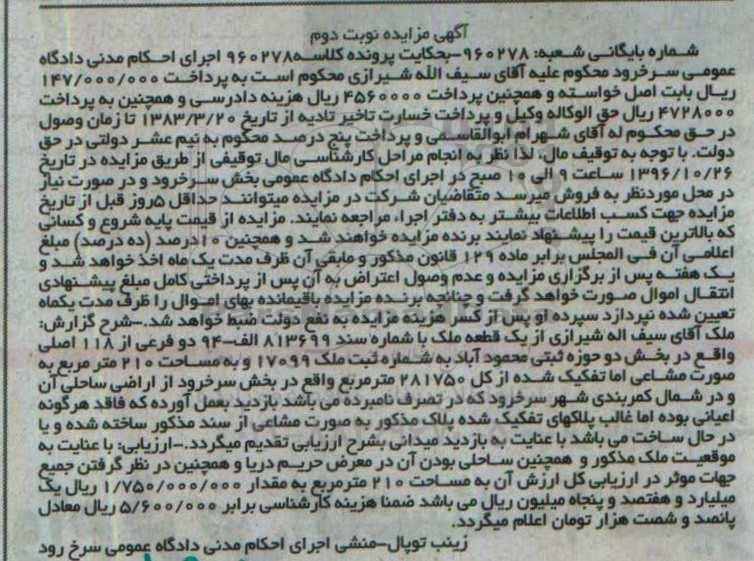 آگهی مزایده نوبت دوم
شماره بایگانی شعبه: ۹۶۰۲۷۸-بحکایت پرونده کلاسه۹۶۰۲۷۸ اجرای احکام مدنی دادگاه
عمومی سرخرود محکوم علیه آقای سیف الله شیرازی محکوم است به پرداخت ۱۴۷/۰۰۰/۰۰۰
ریال بابت اصل خواسته و همچنین پرداخت ۴۵۶۰۰۰۰ ریال هزینه دادرسی و همچنین به پرداخت
۴۷۲۸۰۰۰ ریال حق الوکاله وکیل و پرداخت خسارت تاخیر تادیه از تاریخ ۱۳۸۳/۳/۲۰ تا زمان وصول
در حق محکوم له آقای شهرام ابوالقاسمی و پرداخت پنج درصد محکوم به نیم عشر دولتی در حق
دولت. با توجه به توقیف مال، لذا نظر به انجام مراحل کارشناسی مال توقیفی از طریق مزایده در تاریخ
۱۳۹۶/۱۰/۲۶ ساعت ۹ الی ۱۰ صبح در اجرای احکام دادگاه عمومی بخش سرخرود و در صورت نیاز
در محل موردنظر به فروش میرسد متقاضیان شرکت در مزایده میتوانند حداقل ۵روز قبل از تاریخ
مزایده جهت کسب اطلاعات بیشتر به دفتر اجراء مراجعه نمایند. مزایده از قیمت پایه شروع و کسانی
که بالاترین قیمت را پیشنهاد نمایند برنده مزایده خواهند شد و همچنین ۱۰درصد (ده درصد) مبلغ
اعلامی آن فی المجلس برابر ماده ۱۲۹ قانون مذکور و مابقی آن ظرف مدت یک ماه اخذ خواهد شد و
یک هفته پس از برگزاری مزایده و عدم وصول اعتراض به آن پس از پرداختی کامل مبلغ پیشنهادی
انتقال اموال صورت خواهد گرفت و چنانچه برنده مزایده باقیمانده بهای اموال را ظرف مدت یکماه
تعیین شده نپردازد سپرده او پس از کسر هزینه مزایده به نفع دولت ضبط خواهد شد.-شرح گزارش:
ملک آقای سیف اله شیرازی از یک قطعه ملک با شماره سند ۸۱۳۶۹۹ الف-۹۴ دو فرعی از ۱۱۸ اصلی
واقع در بخش دو حوزه ثبتی محمود آباد به شماره ثبت ملک ۱۷۰۹۹ و به مساحت ۲۱۰ متر مربع به
صورت مشاعی اما تفکیک شده از کل ۲۸۱۷۵۰ مترمربع واقع در بخش سرخرود از اراضی ساحلی آن
و در شمال کمربندی شهر سرخرود که در تصرف نامبرده می باشد بازدید بعمل آورده که فاقد هرگونه
اعیانی بوده اما غالب پلاکهای تفکیک شده پلاک مذکور به صورت مشاعی از سند مذکور ساخته شده و یا
در حال ساخت می باشد با عنایت به بازدید میدانی بشرح ارزیابی تقدیم میگردد.-ارزیابی: با عنایت به
موقعیت ملک مذکور و همچنین ساحلی بودن آن در معرض حریم دریا و همچنین در نظر گرفتن جمیع
جهات موثر در ارزیابی کل ارزش آن به مساحت ۲۱۰ مترمربع به مقدار ۱/۷۵۰/۰۰۰/۰۰۰ ریال یک
میلیارد و هفتصد و پنجاه میلیون ریال می باشد ضمنا هزینه کارشناسی برابر ۵/۶۰۰/۰۰۰ ریال معادل
پانصد و شصت هزار تومان اعلام میگردد.
زینب توپال-منشی اجرای احکام مدنی دادگاه عمومی سرخ رود